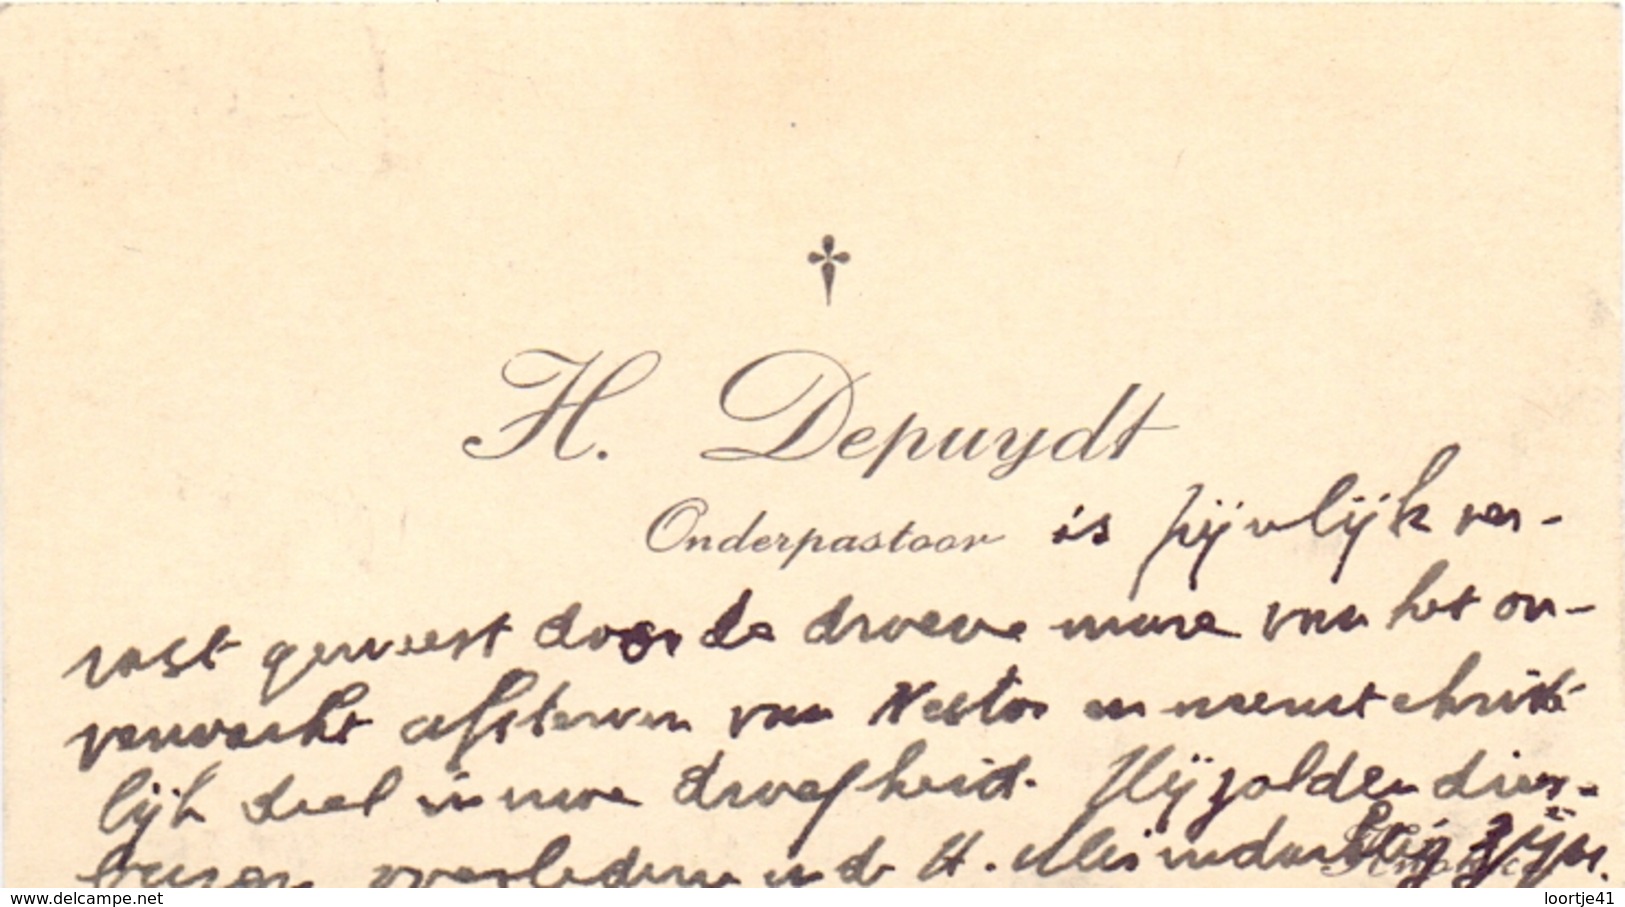 †
H. Depuydt
Onderpastoor is pijnlijk ver-
rast geweest door de droeve mare van het on-
verwacht afsterven van Nestor en neemt christe-
lijk deel in uwe droefheid. Hij zal den dier-
overledene in de H. Mis indachtig zijn.
www.delcampe.net
loortje41